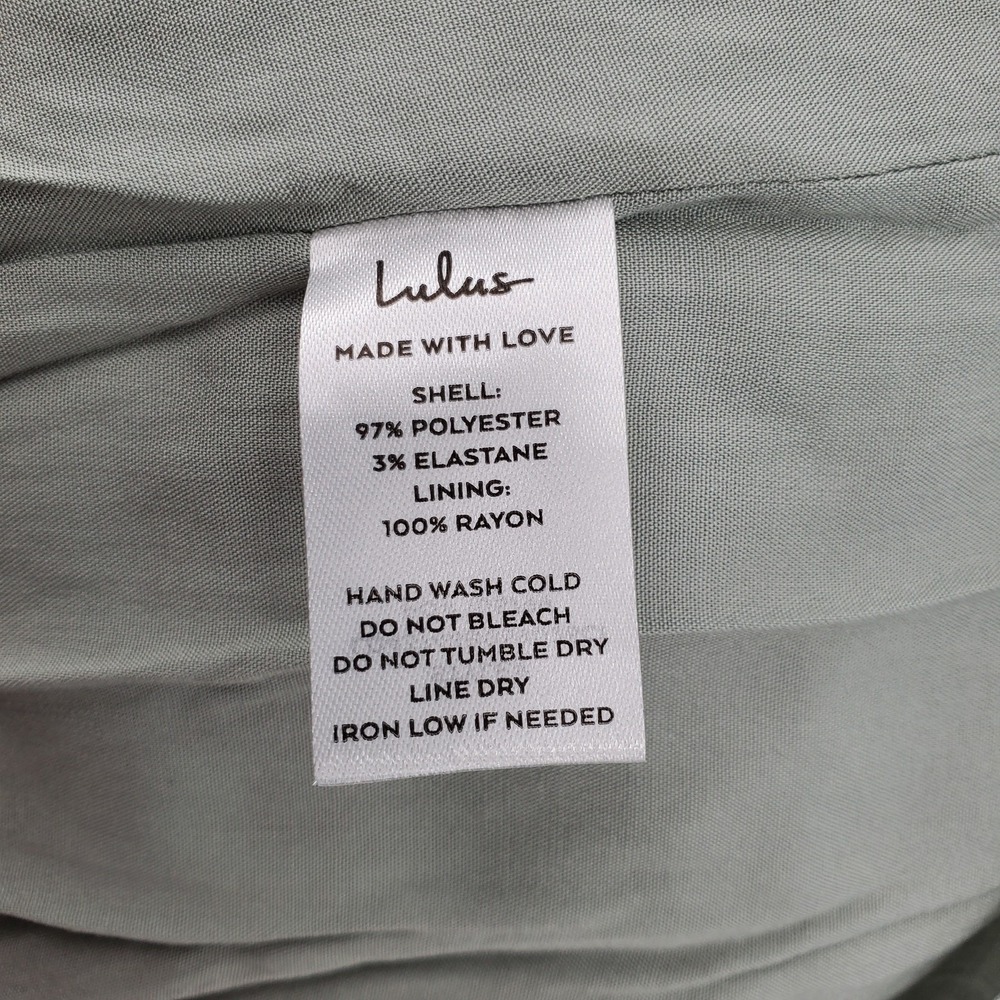 Lulus
MADE WITH LOVE
SHELL:
97% POLYESTER
3% ELASTANE
LINING:
100% RAYON
HAND WASH COLD
DO NOT BLEACH
DO NOT TUMBLE DRY
LINE DRY
IRON LOW IF NEEDED